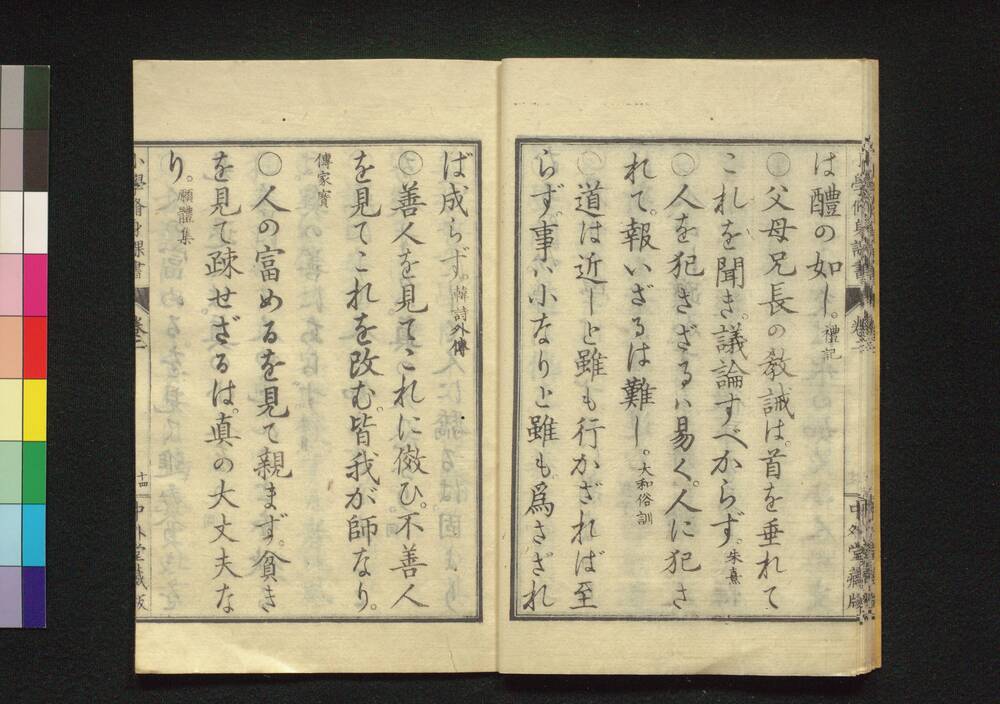 は醴の如し。禮記
○父母兄長の教誡は。首を垂れて
これを聞き。議論すべからず。朱熹
○人を犯さざるハ易く。人に犯さ
れて。報いざるは難し。大和俗訓
○道は近しと雖も行かざれば至
らず。事ハ小なりと雖も。爲さざれ
ば成らず。韓詩外傳
○善人を見てこれに傚ひ。不善人
を見てこれを改む。皆我が師なり。
傳家寳
○人の富めるを見て親まず。貧き
を見て疎せざるは。真の大丈夫な
り。願體集
小學脩身課書
卷三
十四
中外堂藏版